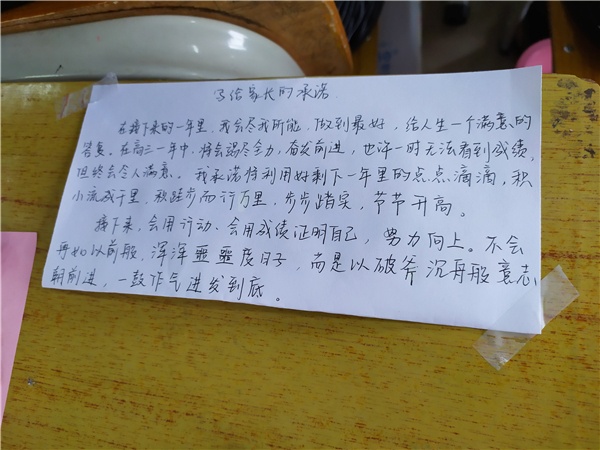 写给家长的承诺
在接下来的一年里,我会尽我所能,做到最好,给人生一个满意的
答复。在高三一年中,将会竭尽全力,奋发前进,也许一时无法看到成绩,
但终会尽人满意。我承诺将利用好剩下一年里的点点滴滴,积
小流成千里,积跬步而行万里,步步踏实,节节开高。
接下来,会用行动、会用成绩证明自己,努力向上。不会
再如以前般,浑浑噩噩度日子,而是以破斧沉舟般意志
朝前进,一鼓作气进发到底。